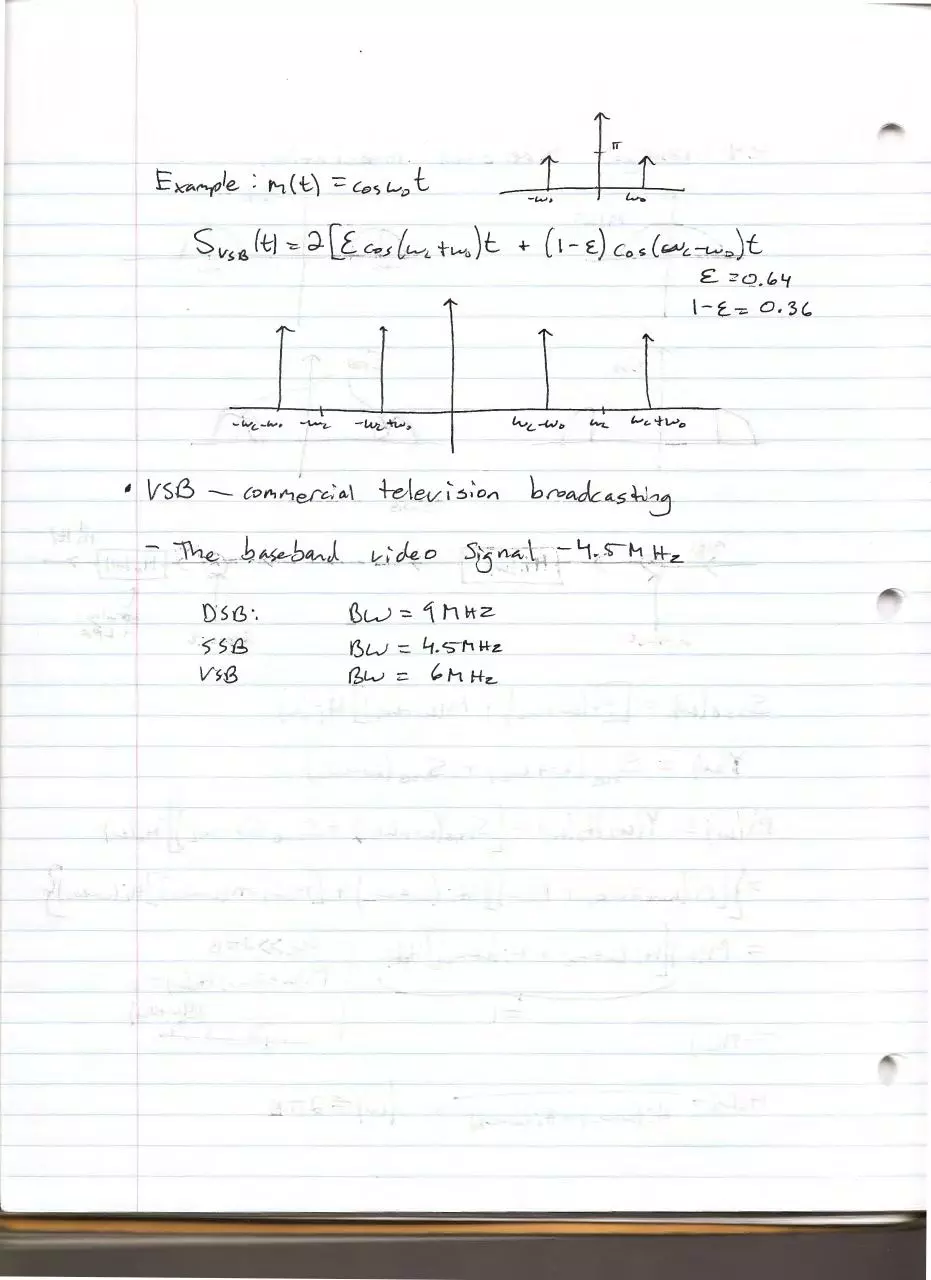 π
-ω₀ ω₀
Example : m(t) = cos ω₀t
S_VSB(t) = 2[ε cos(ω_c + ω₀)t + (1-ε) cos(ω_c - ω₀)t
ε = 0.64
1-ε = 0.36
-ω_c-ω₀ -ω_c -ω_c+ω₀ ω_c-ω₀ ω_c ω_c+ω₀
• VSB — commercial television broadcasting
- The baseband video signal - 4.5 MHz
DSB: BW = 9 MHZ
SSB BW = 4.5 MHz
VSB BW = 6 MHz